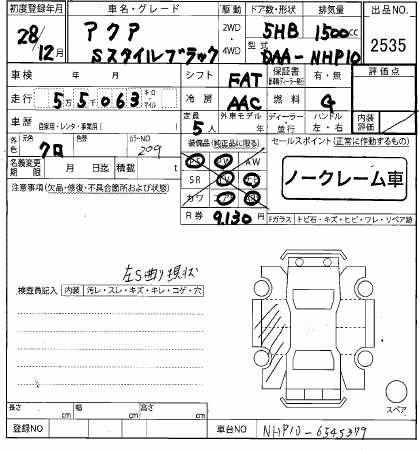 初度登録年月 車名・グレード 駆動 ドア数・形状 排気量 出品NO
28/12月 アクア Sスタイルブラック 2WD 4WD 5HB 1500cc 2535
型式 DAA-NHP10
車検 年 月 シフト FAT 保証書 有・無 評価点
走行 55,063 キロ マイル 冷房 AAC 燃料 G
車歴 自家用・レンタ・事業用( 定員 5人 外車モデル 年 ディーラー 並行 ハンドル 左・右 内装評価
外色 元色 クロ 色替 カラーNO 209 装備品(純正品に限る) セールスポイント(正常に作動するもの)
名義変更期限 月 日迄 積載 t PS PW AW
SR ノークレーム車
カワ
注意事項(欠品・修復・不具合箇所および状態) R券 9,130円 Fガラス トビ石・キズ・ヒビ・ワレ・リペア跡
左S曲り現状
検査員記入 内装 汚レ・スレ・キズ・キレ・コゲ・穴
スペア
長さ cm 幅 cm 高さ cm
登録NO 車台NO NHP10-6545379